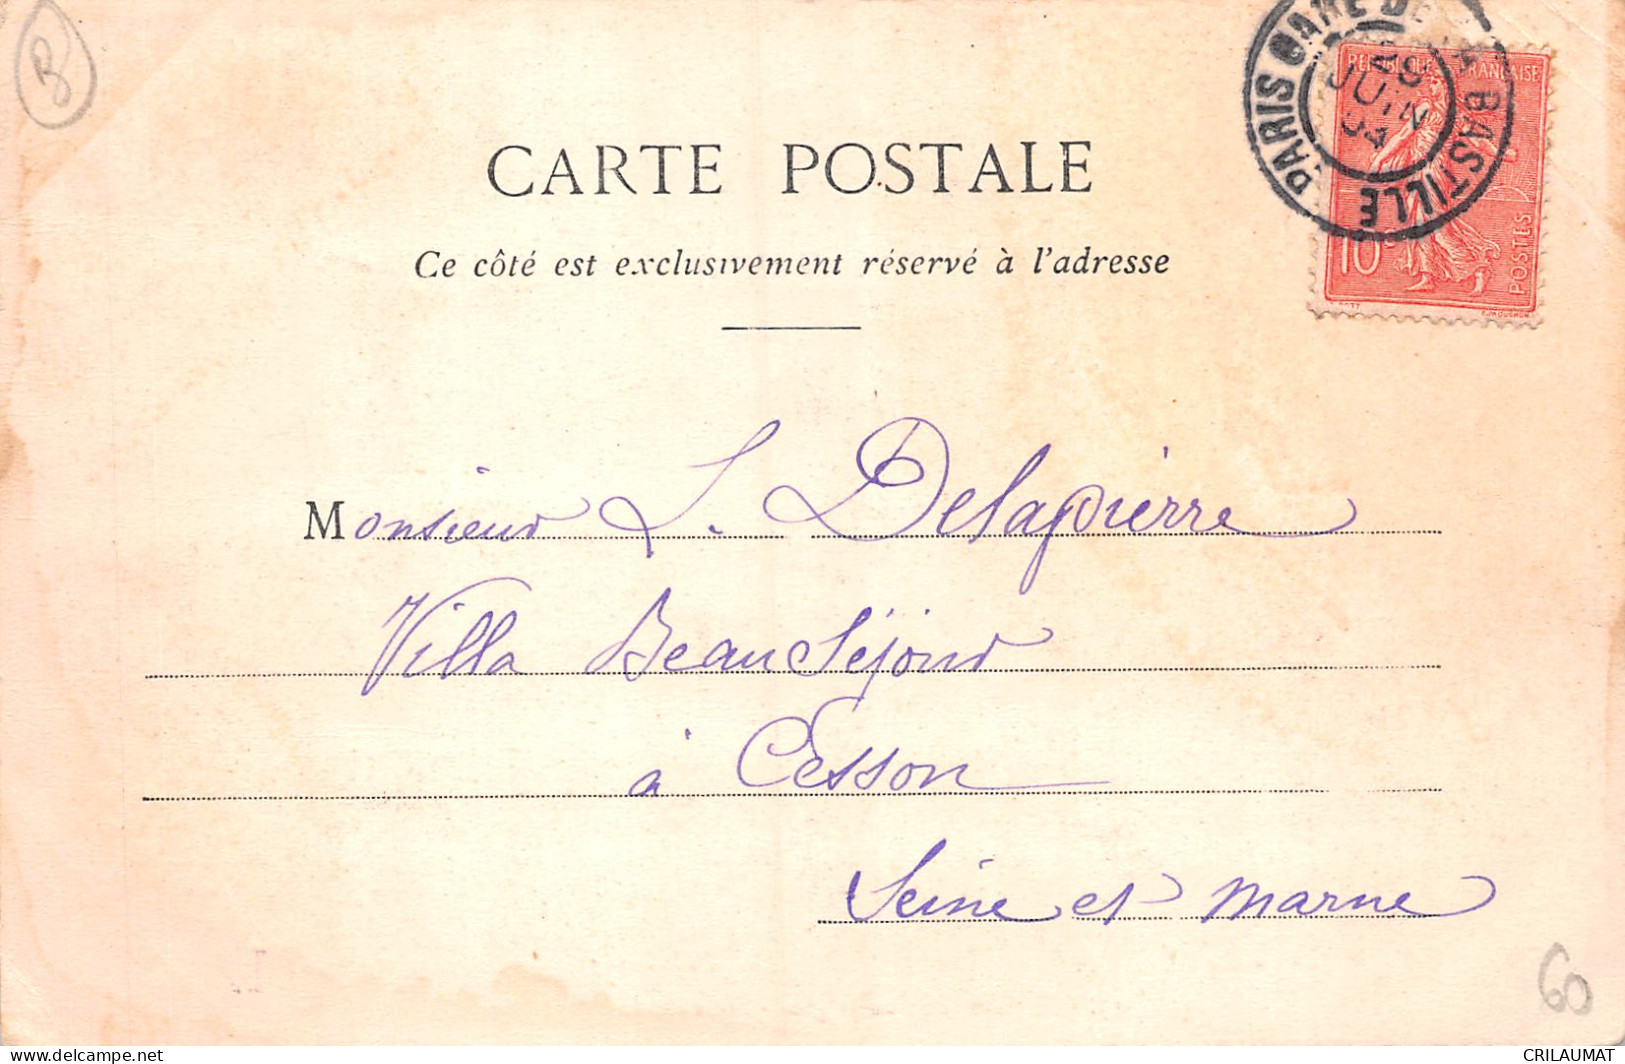 B
PARIS GARE DE LA BASTILLE
JUIN
REPUBLIQUE FRANÇAISE
10c
POSTES
CARTE POSTALE
Ce côté est exclusivement réservé à l'adresse
Monsieur L. Delapierre
Villa Beau Séjour
à Cesson
Seine et Marne
60
delcampe.net
CRILAUMAT